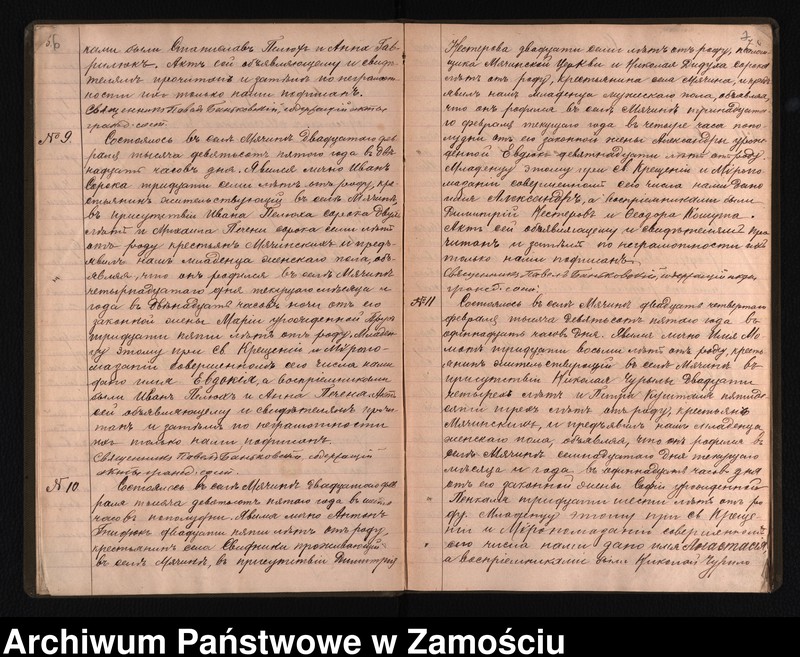 ками были Станиславъ Пелюхъ и Анна Гав-
рилюкъ. Актъ сей объявляющему и свидѣ-
телямъ прочитанъ и затѣмъ по неграмот-
ности ихъ только нами подписанъ.
Священникъ Павелъ содержащій акты
гражд. сост.
№ 9. Состоялось въ селѣ Мячинѣ двадцатаго фев-
раля тысяча девятьсотъ пятаго года въ двѣ-
надцать часовъ дня. Явился лично Иванъ
Сорока тридцати семи лѣтъ отъ роду, кре-
стьянинъ жительствующій въ селѣ Мячинѣ,
въ присутствіи Ивана Пелюха сорока двухъ
лѣтъ и Михаила сорока семи лѣтъ
отъ роду крестьянъ Мячинскихъ и предъ-
явилъ намъ младенца женскаго пола, объ-
являя, что онъ родился въ селѣ Мячинѣ
четырнадцатаго дня текущаго мѣсяца и
года въ двѣнадцать часовъ ночи отъ его
законной жены Маріи урожденной
тридцати пяти лѣтъ отъ роду. Младен-
цу этому при Св. Крещеніи и Мѵропо-
мазаніи совершенномъ сего числа нами
дано имя Евдокія, а воспріемниками
были Иванъ Пелюхъ и Анна Актъ
сей объявляющему и свидѣтелямъ прочи-
танъ и затѣмъ по неграмотности
ихъ только нами подписанъ.
Священникъ Павелъ содержащій
акты гражд. сост.
№ 10. Состоялось въ селѣ Мячинѣ двадцатаго фев-
раля тысяча девятьсотъ пятаго года въ
часовъ пополудни. Явился лично Антонъ
двадцати пяти лѣтъ отъ роду,
крестьянинъ села проживающій
въ селѣ Мячинѣ, въ присутствіи Димитрія
Нестерова двадцати семи лѣтъ отъ роду,
Мячинской Церкви и Николая Дидуха сорока
лѣтъ отъ роду, крестьянина села Мячина, и предъ-
явилъ намъ младенца мужескаго пола, объявляя,
что онъ родился въ селѣ Мячинѣ
го февраля текущаго года въ четыре часа попо-
лудни отъ его законной жены Александры урож-
денной девятнадцати лѣтъ отъ роду.
Младенцу этому при Св. Крещеніи и Мѵропо-
мазаніи совершенномъ сего числа нами дано
имя Александръ, а воспріемниками были
Димитрій Нестеровъ и Ѳеодора
Актъ сей объявляющему и свидѣтелямъ про-
читанъ и затѣмъ по неграмотности ихъ
только нами подписанъ.
Священникъ Павелъ содержащій акты
гражд. сост.
№ 11 Состоялось въ селѣ Мячинѣ двадцать четвертаго
февраля тысяча девятьсотъ пятаго года въ
одиннадцать часовъ дня. Явился лично Илья
тридцати восьми лѣтъ отъ роду, кресть-
янинъ жительствующій въ селѣ Мячинѣ въ
присутствіи Николая двадцати
четырехъ лѣтъ и Петра пятиде-
сяти трехъ лѣтъ отъ роду, крестьянъ
Мячинскихъ, и предъявилъ намъ младенца
женскаго пола, объявляя, что онъ родился въ
селѣ Мячинѣ семнадцатаго дня текущаго
мѣсяца и года въ одиннадцать часовъ дня
отъ его законной жены Софіи урожденной
тридцати шести лѣтъ отъ ро-
ду. Младенцу этому при Св. Креще-
ніи и Мѵропомазаніи совершенномъ
сего числа нами дано имя Анастасія,
а воспріемниками были Николай
Archiwum Państwowe w Zamościu